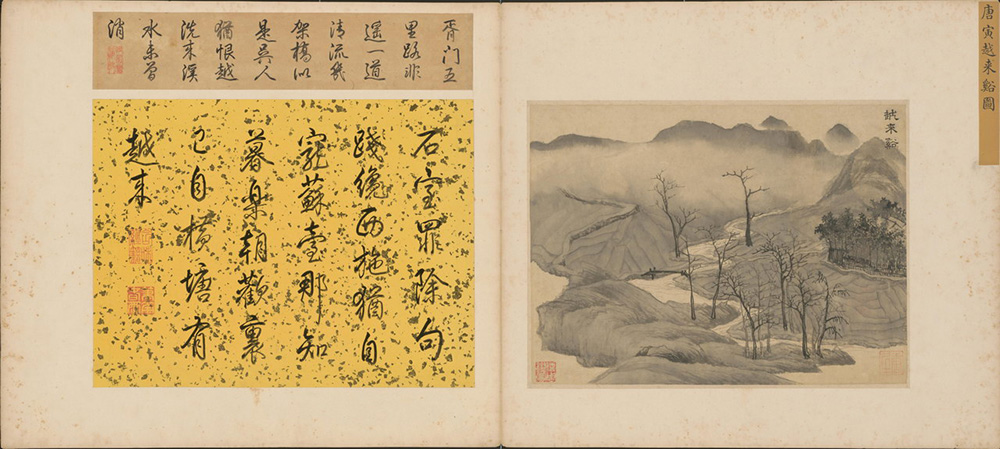 唐寅越來谿圖
越來谿
胥門五
里路非
遥一道
清流幾
架橋似
是吳人
猶恨越
洗來溪
水未曾
消
石室罪除句
踐纔西施猶自
寵蘇臺那知
暮樂朝歡裏
已自橫塘有
越來